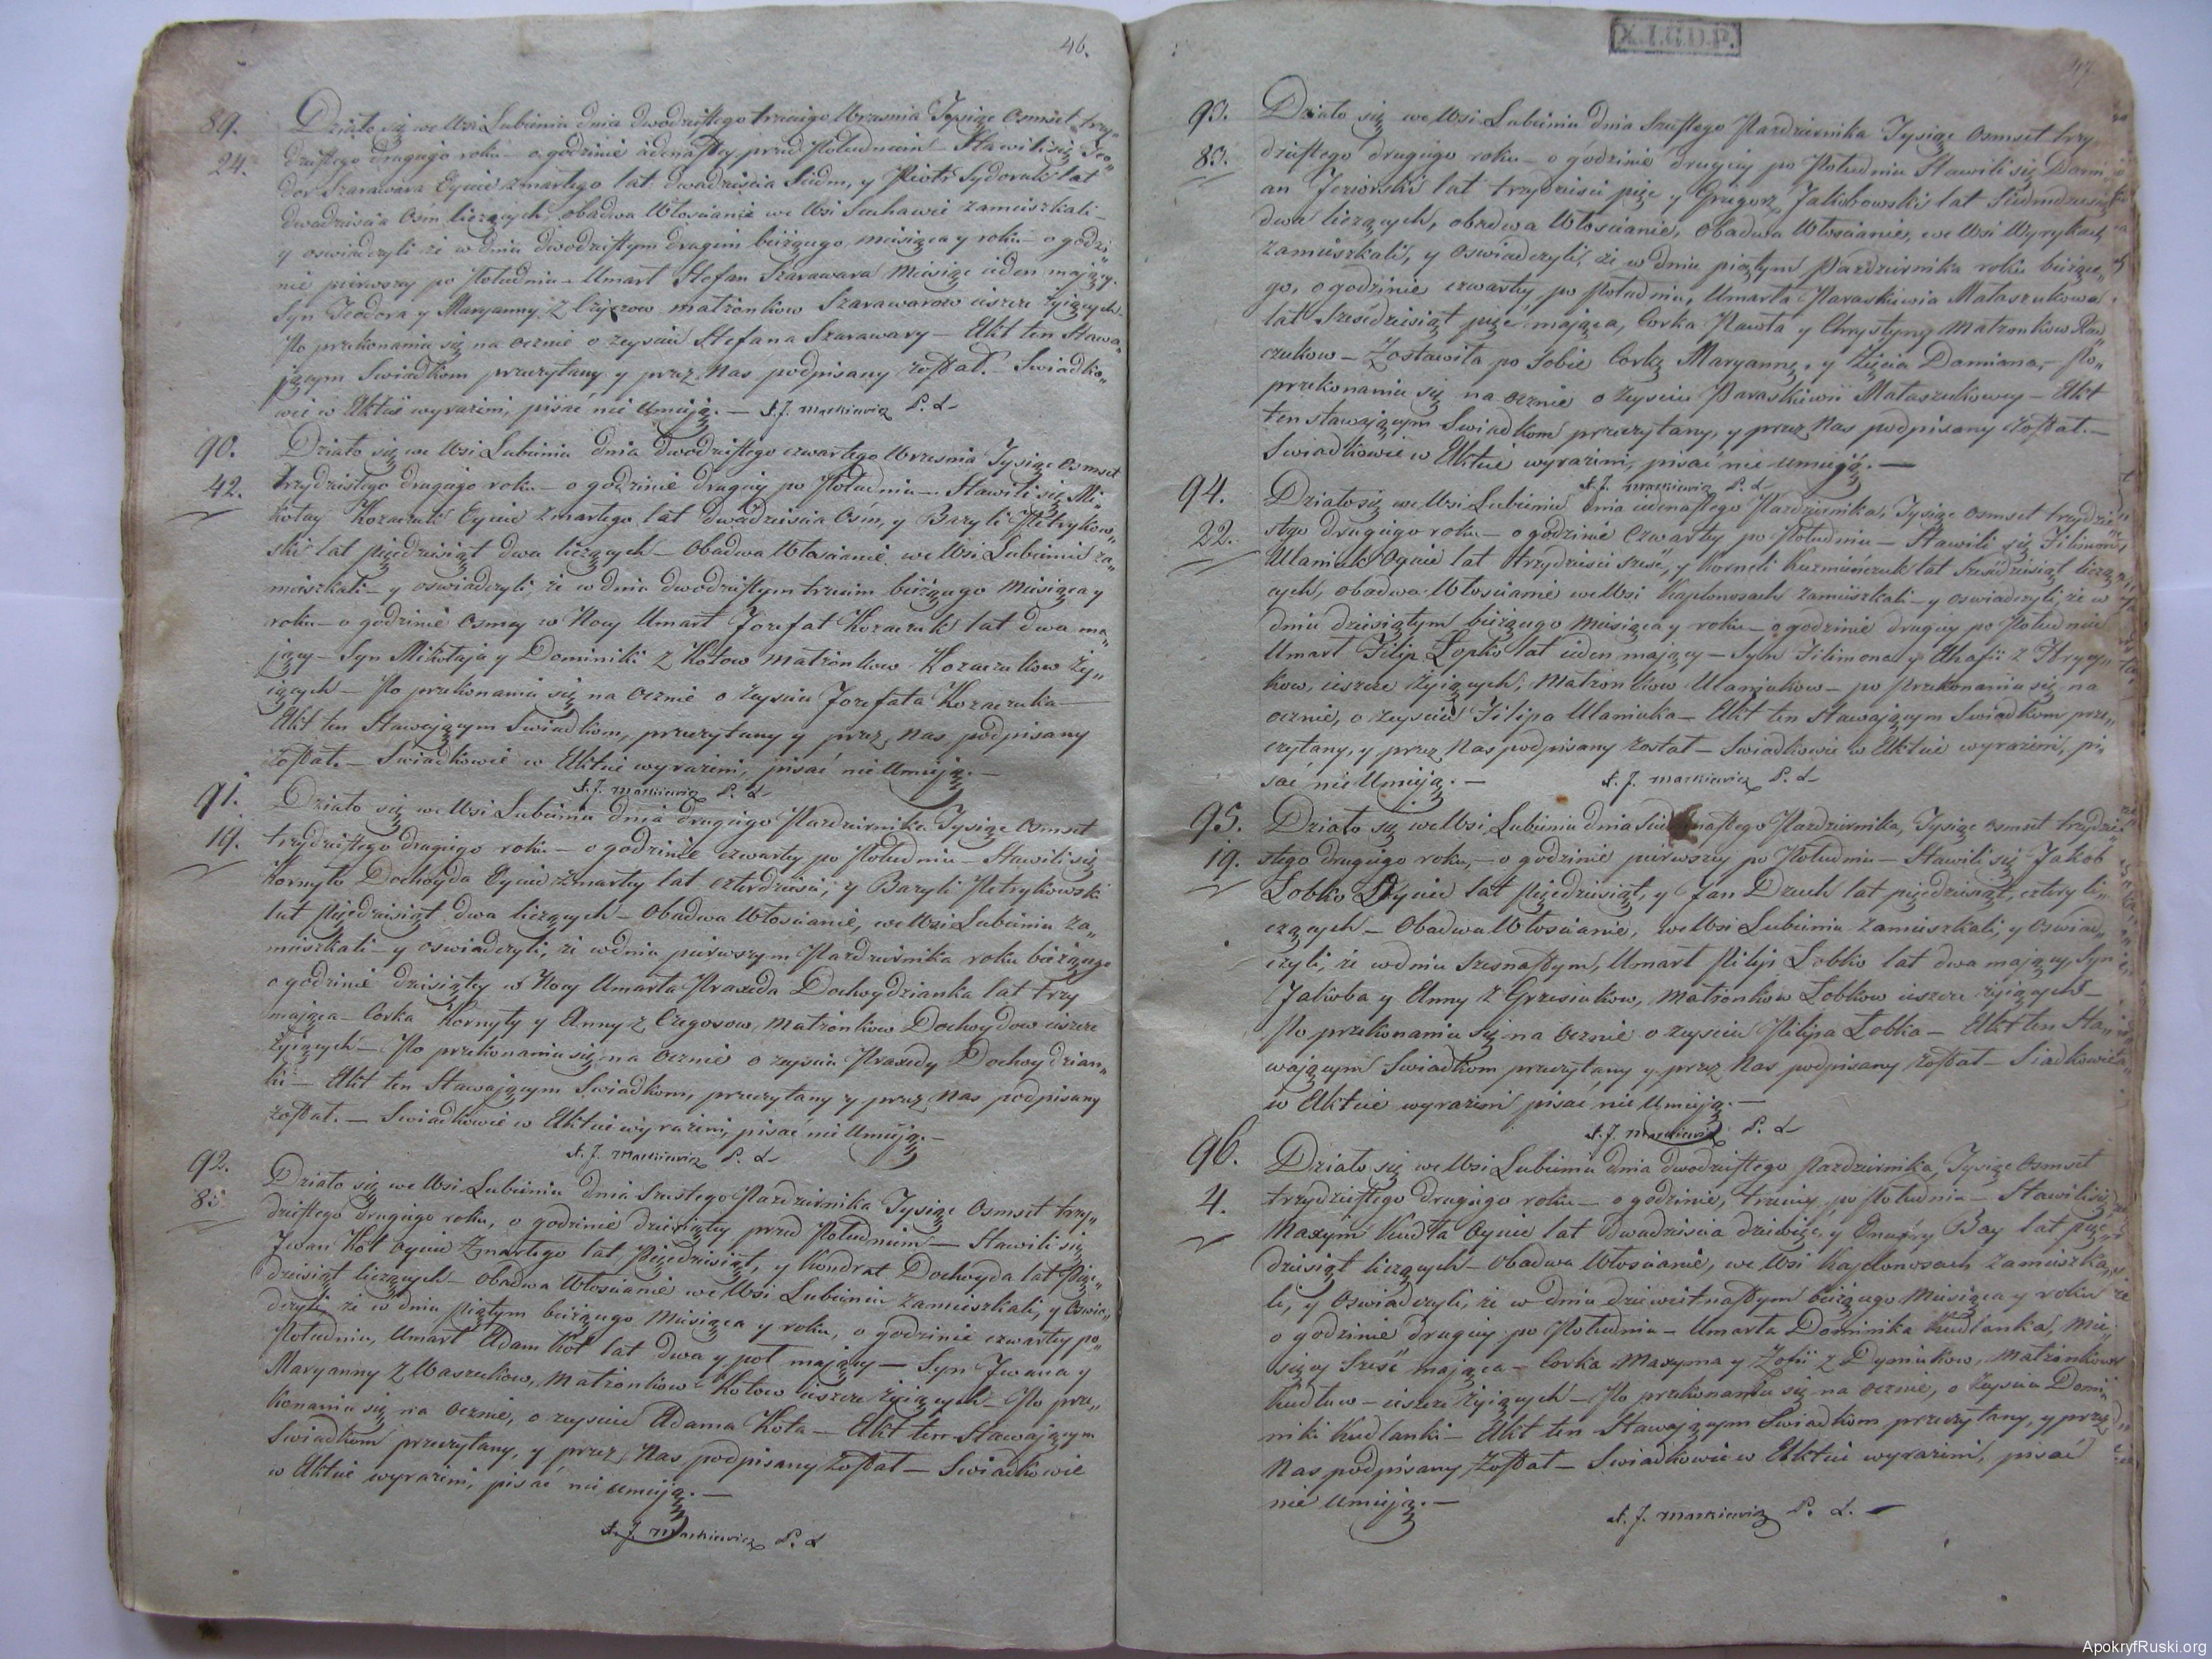 46.
89.
24.
Działo się we Wsi Lubieniu dnia dwódziestego trzeciego Wrzesnia Tysiąc Osmset trzy„
dziestego drugiego roku – o godzinie iedenastey przed Południem – Stawili się Teo„
dor Szarawara Oyciec zmarłego lat dwadzieścia Siedm, y Piotr Sydoruk lat
dwadzieścia Osm liczących, obadwa Włościanie we Wsi Suchawie zamieszkali –
y oswiadczyli że w dniu dwódziestym drugim bieżącego miesiąca y roku – o godzi„
nie pierwszey po Południu – Umarł Stefan Szarawara Miesiąc ieden maiący.
Syn Teodora y Maryanny z małżonkow Szarawarow ieszcze żyiących
Po przekonaniu się na ocznie o zeyściu Stefana Szarawary – Akt ten Stawa„
jącym Swiadkom przeczytany y przez Nas podpisany został. – Swiadko„
wie w Akcie wyrażeni, pisać nie umieją. – X. J. Markiewicz P. L.
90.
42.
Działo się we Wsi Lubieniu dnia dwodziestego czwartego Wrzesnia Tysiąc Osmset
trzydziestego drugiego roku – o godzinie drugiey po Południu – Stawili się Mi„
kołay Kozaczuk Oyciec zmarłego lat dwadzieścia Osm, y Bazyli Petrykow„
ski lat pięćdziesiąt dwa liczących – Obadwa Włościanie we Wsi Lubieniu za„
mieszkali – y oswiadczyli, że w dniu dwodziestym trzecim bieżącego Miesiąca y
roku – o godzinie Osmey w Nocy Umarł Jozefat Kozaczuk lat dwa ma„
jący – Syn Mikołaja y Dominiki z Kotow małżonkow Kozaczukow ży„
iących – Po przekonaniu się na ocznie o zeyściu Jozefata Kozaczuka –
Akt ten Stawającym Swiadkom, przeczytany y przez Nas podpisany
został. – Swiadkowie w Akcie wyrażeni, pisać nie Umieją. –
X. J. Markiewicz P. L.
91.
19.
Działo się we Wsi Lubieniu dnia drugiego Pazdziernika Tysiąc Osmset
trzydziestego drugiego roku – o godzinie czwartey po Południu – Stawili się
Kornyło Dochoyda Oyciec zmarłey lat czterdzieści, y Bazyli Petrykowski
lat Pięćdziesiąt dwa liczących – Obadwa Włościanie, we Wsi Lubieniu za„
mieszkali – y oswiadczyli, że w dniu pierwszym Pazdziernika roku bieżącego
o godzinie dziesiątey w Nocy Umarła Praxeda Dochoydzianka lat trzy
mająca – Corka Kornyły y Anny z małżonkow Dochoydow ieszcze
żyiących – Po przekonaniu się na ocznie o zeyściu Praxedy Dochoydzian„
ki – Akt ten Stawającym Swiadkom, przeczytany y przez Nas podpisany
został. – Swiadkowie w Akcie wyrażeni, pisać nie Umieją. –
X. J. Markiewicz P. L.
92.
8.
Działo się we Wsi Lubieniu dnia Szostego Pazdziernika Tysiąc Osmset trzy„
dziestego drugiego roku, o godzinie dziesiątey przed Południem – Stawili się
Jwan Kot Oyciec Zmarłego lat Pięćdziesiąt, y Kondrat Dochoyda lat Pięć„
dziesiąt liczących – Obadwa Włościanie we Wsi Lubieniu zamieszkali, y Oswia„
dczyli że w dniu Piątym bieżącego Miesiąca y roku, o godzinie czwartey po„
Południu, Umarł Adam Kot lat dwa y pół mający – Syn Jwana y
Maryanny z Waszukow, małżonkow Kotow ieszcze żyiących – Po prze„
konaniu się na ocznie, o zeyściu Adama Kota – Akt ten Stawającym
Swiadkom przeczytany, y przez Nas podpisany został – Swiadkowie
w Akcie wyrażeni, pisać nie umieją. –
X. J. Markiewicz P. L
X.I.C.D.P.
47.
93.
83.
Działo się we Wsi Lubieniu dnia Szostego Pazdziernika Tysiąc Osmset trzy
dziestego drugiego roku – o godzinie drugiey po Południu Stawili się Dami
an Jeziorski lat trzydzieści pięć y Grzegorz Jakubowski lat Siedmdziesiąt
dwa liczących, obadwa Włościanie, obadwa Włościanie, we Wsi Wyrykach
zamieszkali, y oswiadczyli, że w dniu piątym Pazdziernika roku bieżące„
go, o godzinie czwartey po Południu, Umarła Paraskiewia Mataszukowa
lat Sześćdziesiąt pięć mająca, Corka Pawła y Chrystyny Małżonkow
czukow – Zostawiła po Sobie Corkę Maryannę, y Zięcia Damiana, – Po„
przekonaniu się na ocznie o zeyściu Paraskiewii Mataszukowey – Akt
ten stawającym Swiadkom przeczytany, y przez Nas podpisany został. –
Swiadkowie w Akcie wyrażeni, pisać nie umieją. –
X. J. Markiewicz P. L
94.
22.
Działo się we Wsi Lubieniu dnia iedenastego Pazdziernika, Tysiąc Osmset trzydzie„
stego drugiego roku – o godzinie Czwartey po Południu – Stawili się Filimon
Ulaniuk Oyciec lat trzydzieści sześć, y Korneli Kuzmińczuk lat Sześćdziesiąt licząc„
cych, obadwa Włościanie we Wsi Kaplonosach zamieszkali – y oswiadczyli, że w
dniu dziesiątym bieżącego miesiąca y roku – o godzinie drugiey po Południu
Umarł Filip Łopko lat ieden mający – Syn Filimona y Ahafii z Hrycy„
kow, ieszcze żyiących, Małżonkow Ulaniukow – po Przekonaniu się na
ocznie, o zeyściu Filipa Ulaniuka – Akt ten stawającym Swiadkom prze„
czytany, y przez Nas podpisany został – Swiadkowie w Akcie wyrażeni, pi„
sać nie Umieją. – X. J. Markiewicz P. L
95.
19.
Działo się we Wsi Lubieniu dnia Siedmnastego Pazdziernika, Tysiąc Osmset trzydzie„
stego drugiego roku, – o godzinie pierwszey po Południu – Stawili się Jakob
Łobko Oyciec lat Pięćdziesiąt, y Jan Dzuch lat pięćdziesiąt, cztery li„
czących – Obadwa Włościanie, we Wsi Lubieniu zamieszkali, y Oswiad„
czyli, że w dniu Szesnastym, Umarł Pilip Łobko lat dwa mający, Syn
Jakoba y Anny z Grzesiukow, małżonkow Łobkow ieszcze żyiących –
Po przekonaniu się na ocznie o zeyściu Pilipa Łobka – Akt ten Sta„
wającym Swiadkom przeczytany y przez Nas podpisany został – Siadkowie
w Akcie wyrażeni pisać nie Umieją. –
X. J. Markiewicz P. L
96.
4.
Działo się we Wsi Lubieniu dnia dwodziestego Pazdziernika, Tysiąc Osmset
trzydziestego drugiego roku – o godzinie, trzeciey po Południu – Stawili się
Maxym Kudła Oyciec lat dwadzieścia dziewięć, y Onufry Bay lat pięć„
dziesiąt liczących – Obadwa Włościanie, we Wsi Kaplonosach zamieszka„
li, y Oswiadczyli, że w dniu dziewietnastym bieżącego Miesiąca y roku
o godzinie drugiey po Południu – Umarła Dominika Kudlanka, Mie„
sięcy Sześć mająca – Corka Maxyma y Zofii z Dymiukow, Małżonkow
Kudłow – ieszcze żyiących – Po przekonaniu się na ocznie, o Zeyściu Domi„
niki Kudlanki – Akt ten Stawającym Swiadkom przeczytany, y przez
Nas podpisany został – Swiadkowie w Akcie wyrażeni, pisać
nie Umieją. – X. J. Markiewicz P. L. –
ApokryfRuski.org